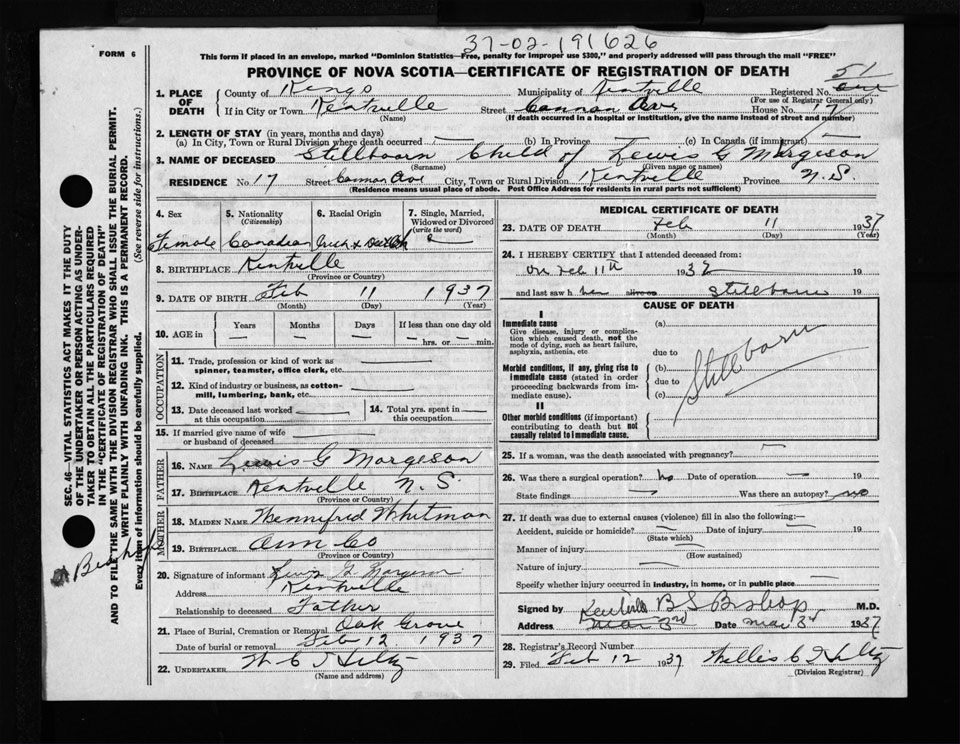 37-02-191626
FORM 6
This form if placed in an envelope, marked "Dominion Statistics—Free, penalty for improper use $300," and properly addressed will pass through the mail "FREE"
PROVINCE OF NOVA SCOTIA—CERTIFICATE OF REGISTRATION OF DEATH
51
1. PLACE OF DEATH
County of Kings Municipality of Kentville Registered No.
(For use of Registrar General only)
If in City or Town Kentville Street Cannon Ave House No. 17
(Name) (If death occurred in a hospital or institution, give the name instead of street and number)
2. LENGTH OF STAY (in years, months and days)
(a) In City, Town or Rural Division where death occurred (b) In Province (c) In Canada (if immigrant)
3. NAME OF DECEASED Stillborn Child of Lewis G Margeson
(Surname) (Given name or names)
RESIDENCE No. 17 Street Cannon Ave City, Town or Rural Division Kentville Province N.S.
(Residence means usual place of abode. Post Office Address for residents in rural parts not sufficient)
SEC. 46—VITAL STATISTICS ACT MAKES IT THE DUTY
OF THE UNDERTAKER OR PERSON ACTING AS UNDER-
TAKER TO OBTAIN ALL THE PARTICULARS REQUIRED
IN THE "CERTIFICATE OF REGISTRATION OF DEATH"
AND TO FILE THE SAME WITH THE DIVISION REGISTRAR WHO SHALL ISSUE THE BURIAL PERMIT.
WRITE PLAINLY WITH UNFADING INK. THIS IS A PERMANENT RECORD.
Every item of information should be carefully supplied. (See reverse side for instructions.)
4. Sex
Female
5. Nationality
(Citizenship)
Canadian
6. Racial Origin
Irish & Dutch
7. Single, Married,
Widowed or Divorced
(write the word)
8. BIRTHPLACE Kentville
(Province or Country)
9. DATE OF BIRTH Feb 11 1937
(Month) (Day) (Year)
10. AGE in
Years Months Days If less than one day old
hrs. or min.
OCCUPATION
11. Trade, profession or kind of work as
spinner, teamster, office clerk, etc.
12. Kind of industry or business, as cotton-
mill, lumbering, bank, etc.
13. Date deceased last worked
at this occupation
14. Total yrs. spent in
this occupation
15. If married give name of wife
or husband of deceased
FATHER
16. NAME Lewis G Margeson
17. BIRTHPLACE Kentville N.S.
(Province or Country)
MOTHER
18. MAIDEN NAME Wennifred Whitman
19. BIRTHPLACE Ann Co
(Province or Country)
20. Signature of informant Lewis G. Margeson
Address Kentville
Relationship to deceased Father
21. Place of Burial, Cremation or Removal Oak Grove
Date of burial or removal Feb 12 1937
22. UNDERTAKER W C T Hiltz
(Name and Address)
MEDICAL CERTIFICATE OF DEATH
23. DATE OF DEATH Feb 11 1937
(Month) (Day) (Year)
24. I HEREBY CERTIFY that I attended deceased from:
on Feb 11th 193 19
and last saw h her alive on Stillborn 19
CAUSE OF DEATH
I
Immediate cause
Give disease, injury or complica-
tion which caused death, not the
mode of dying, such as heart failure,
asphyxia, asthenia, etc
Morbid conditions, if any, giving rise to
immediate cause (stated in order
proceeding backwards from im-
mediate cause).
II
Other morbid conditions (if important)
contributing to death but not
causally related to immediate cause.
(a)
due to
(b)
due to
(c)
Stillborn
25. If a woman, was the death associated with pregnancy?
26. Was there a surgical operation? no Date of operation 19
State findings Was there an autopsy? no
27. If death was due to external causes (violence) fill in also the following:—
Accident, suicide or homicide? Date of injury 19
(State which)
Manner of injury
(How sustained)
Nature of injury
Specify whether injury occurred in Industry, in home, or in public place
Signed by B S Bishop M.D.
Address Kentville Mar 3rd Date Mar 3rd 1937
28. Registrar's Record Number
29. Filed Feb 12 1937 Willis C T Hiltz
(Division Registrar)